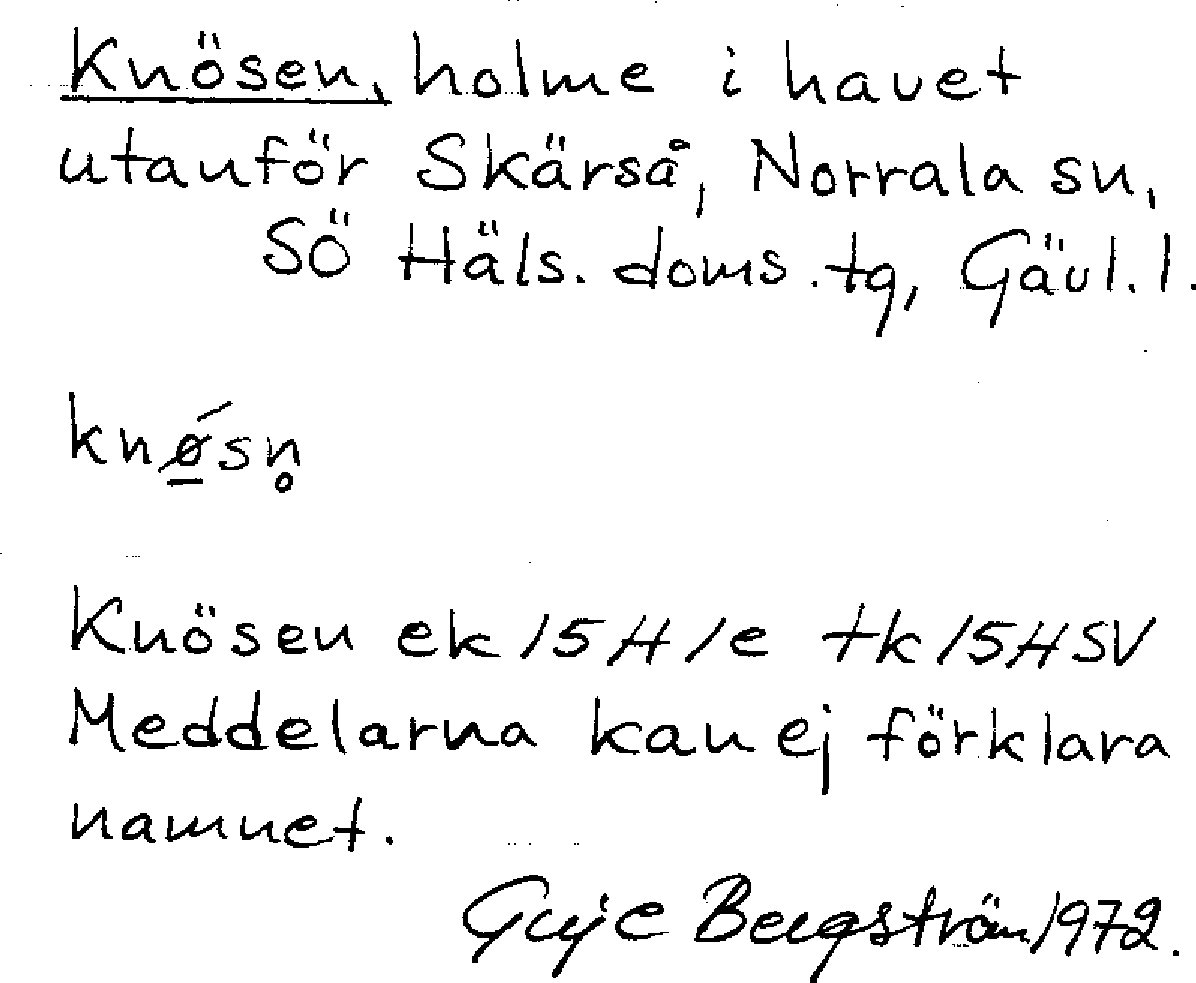 Knösen, holme i havet
utanför Skärså, Norrala sn,
Sö Häls. doms.tg, Gävl.l.
knǿ̱sn̥
Knösen ek/5H/e tk/5HSV
Meddelarna kan ej förklara
namnet.
Bergström 1972.